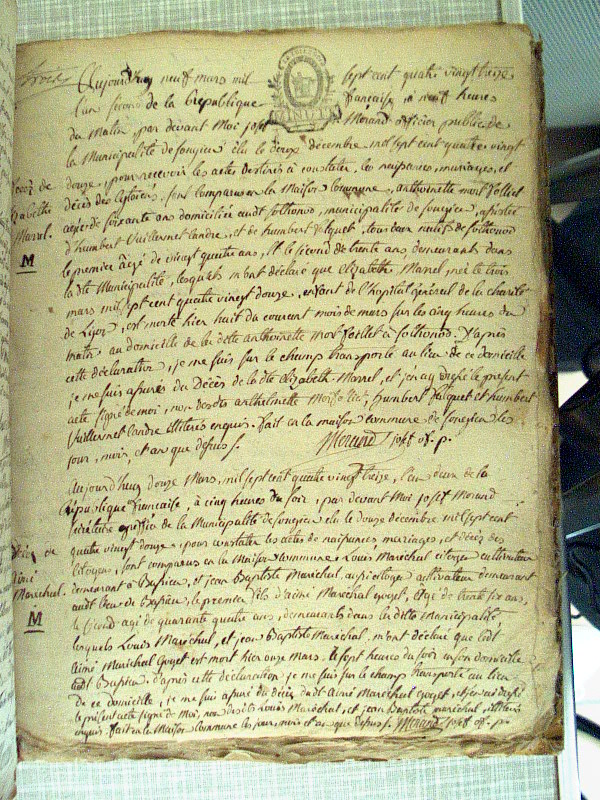 Aujourd'huy neuf mars mil sept cent quatre vingt treize
l'an second de la republique francaise à neuf heures
du matin, par devant Moi josef Morand officier public de
la Municipalité de songieu élu le douze décembre mil sept cent quatre vingt
douze, pour recevoir les actes destinés à constater les naissances, mariages, et
décès des citoiens, sont comparus en la Maison Commune, anthoinette
agée de soixante ans domiciliée audt sothonod, municipalité de songieu, assistée
d'humbert Vuillermet landre, et de humbert falquet, tous deux natifs de sothonod
le premier âgé de vingt quatre ans, Et le second de trente ans, demeurant dans
la dite Municipalité, lesquels m'ont déclaré que Elizabeth Marel, née le trois
mars mil sept cent quatre vingt douze, enfant de l'hopital général de la charité
de Lyon, est morte hier huit du courant mois de mars sur les cinq heures du
matin au domicile de la dite anthoinette à sothonod. D'après
cette déclaration, je me suis sur le champ transporté au lieu de ce domicile
je me suis assuré du Décès de la dte Elizabeth Marel, et j'en ay dressé le present
acte signé de moi, non des dts anthelmette humbert falquet et humbert
Vuillermet landre illiterés enquis. fait en la maison commune de songieu les
jour, mois et an que dessus.
Morand josef of. p.
Décès de
Elizabeth
Marel.
M
Aujourd'huy douze Mars, mil sept cent quatre vingt treize, l'an deux de la
république francaise, à cinq heures du soir, par devant Moi josef Morand
de la Municipalité de songieu élu le douze décembre mil sept cent
quatre vingt douze, pour constater les actes de naissances mariages, et décès des
citoyens, sont comparus en la Maison Commune Louis Maréchal citoyen cultivateur
demeurant à Bassieu, et jean Baptiste Maréchal, aussi citoyen cultivateur demeurant
audt lieu de Bassieu, le premier fils d'aimé Marechal goyet, Agé de trente six ans,
le second agé de quarante quatre ans, demeurants dans la ditte Municipalité,
lesquels Louis Maréchal, et jean Baptiste Maréchal, m'ont déclaré que ledt
aimé Maréchal Goyet est mort hier onze mars à sept heures du soir en son domicile
audt Bassieu. d'après cette déclaration je me suis sur le champ transporté au lieu
de ce domicile, je me suis assuré du décès dudt aimé Maréchal goyet, et j'en ai dressé
le présent acte signé de Moi, non desdts Louis Maréchal, et jean Baptiste maréchal illiterés
enquis. fait en la Maison commune les jour, mois et an que dessus. Morand josef of. p.
Décès de
aimé
Maréchal.
M